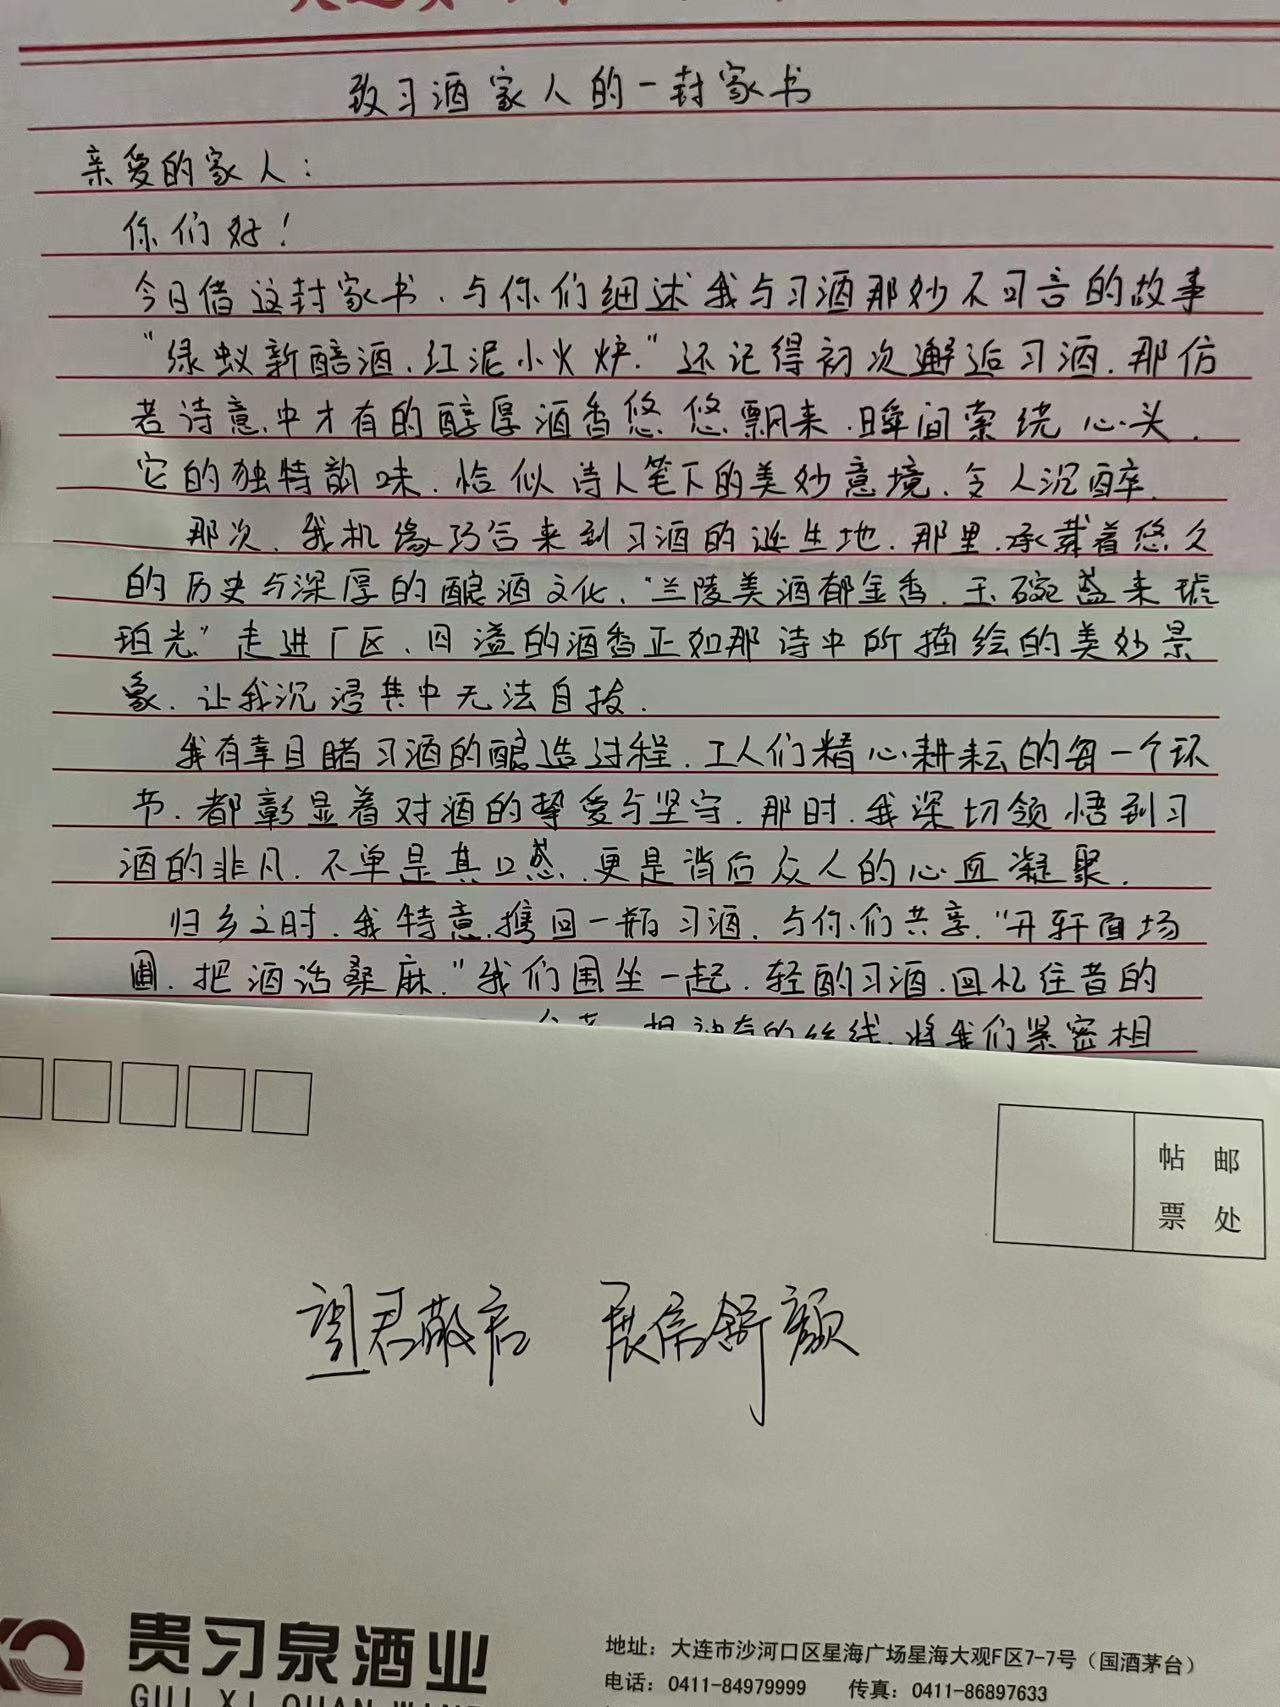 致习酒家人的一封家书
亲爱的家人：
你们好！
今日借这封家书，与你们细述我与习酒那妙不可言的故事
“绿蚁新醅酒，红泥小火炉。”还记得初次邂逅习酒，那仿
若诗意中才有的醇厚酒香悠悠飘来，瞬间萦绕心头，
它的独特韵味，恰似诗人笔下的美妙意境，令人沉醉。
那次，我机缘巧合来到习酒的诞生地，那里，承载着悠久
的历史与深厚的酿酒文化，“兰陵美酒郁金香，玉碗盛来琥
珀光”走进厂区，四溢的酒香正如那诗中所描绘的美妙景
象，让我沉浸其中无法自拔。
我有幸目睹习酒的酿造过程，工人们精心耕耘的每一个环
节，都彰显着对酒的挚爱与坚守，那时，我深切领悟到习
酒的非凡，不单是其口感，更是背后众人的心血凝聚。
归乡之时，我特意携回一瓶习酒，与你们共享，“开轩面场
圃，把酒话桑麻”我们围坐一起，轻酌习酒，回忆往昔的
的丝线，将我们紧密相
帖 邮
票 处
望君敬启 展信舒颜
贵习泉酒业
GUI XI QUAN WINE
地址：大连市沙河口区星海广场星海大观F区7-7号（国酒茅台）
电话：0411-84979999 传真：0411-86897633